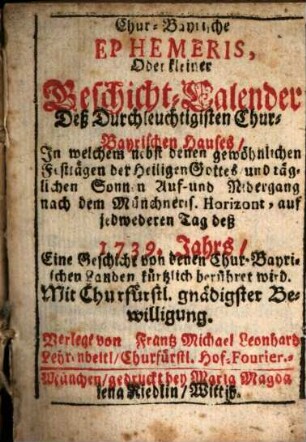 Chur-Bayrische
EPHEMERIS,
Oder kleiner
Geschicht-Calender
Deß Durchleuchtigisten Chur-
Bayrischen Hauses/
In welchem nebst denen gewöhnlichen
Festtägen der Heiligen Gottes und täg-
lichen Sonnen Auf-und Nidergang
nach dem Münchneris. Horizont, auf
jedwederen Tag deß
1739. Jahrs/
Eine Geschicht von denen Chur-Bayri-
schen Landen kürtzlich berühret wird.
Mit Churfürstl. gnädigster Be-
willigung.
Verlegt von Frantz Michael Leonhard
Leyrenbeltl/Churfürstl. Hof-Fourier.
München/gedruckt bey Maria Magda
lena Riedlin/Wittib.